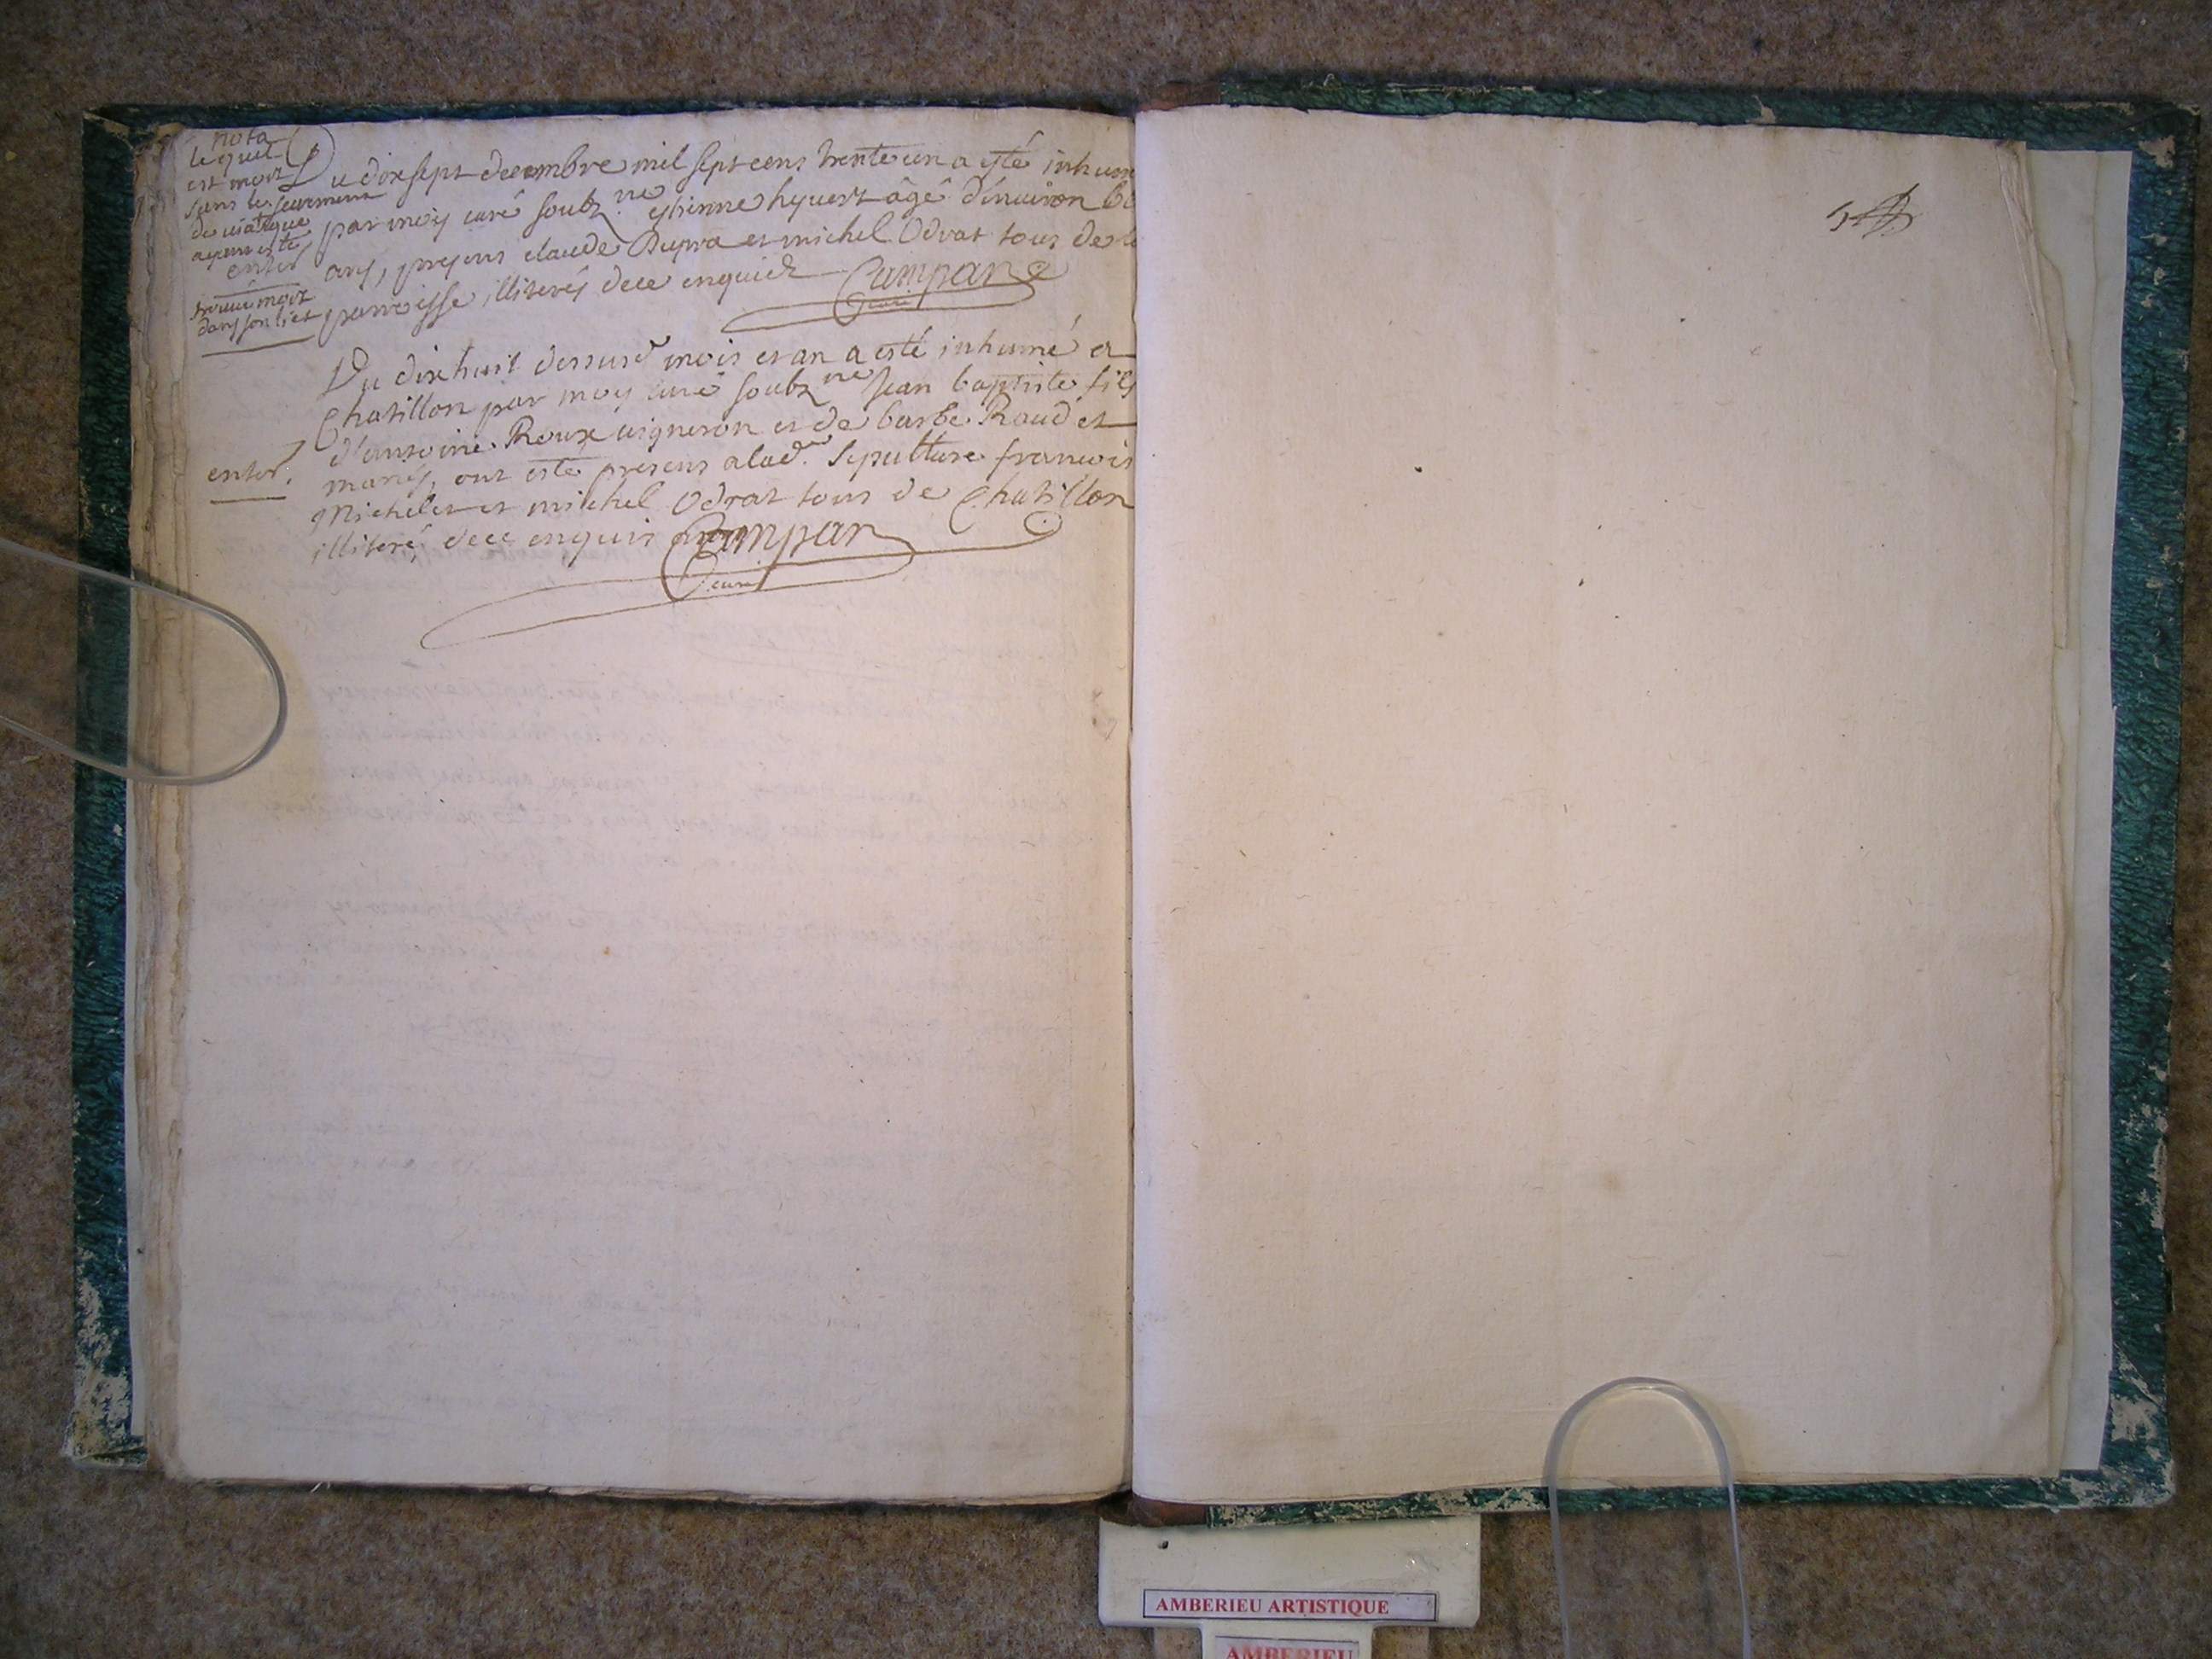 nota
lequel
est mort
sans les sacremens
de viatique
a
enter
trouvé mort
dans son lict
Du dixsept decembre mil sept cens trente un a esté inhum
par moy curé soubz.né estienne hyvert âgé d'environ
ans, presens claude Dupra et michel Odrat tous de
parroisse illiterés de ce enquiz Campan
curé
Du dixhuit dessusd mois et an a esté inhumé a
Chatillon par moy curé soubzné Jean baptiste fils
d'antoine Roux vigneron et de barbe
enter.
mariés, ont esté presens a lad. Sepulture francois
Michelet et michel Odrat tous de Chatillon
illiteré, de ce enquis Campan
curé
AMBERIEU ARTISTIQUE
AMBERIEU